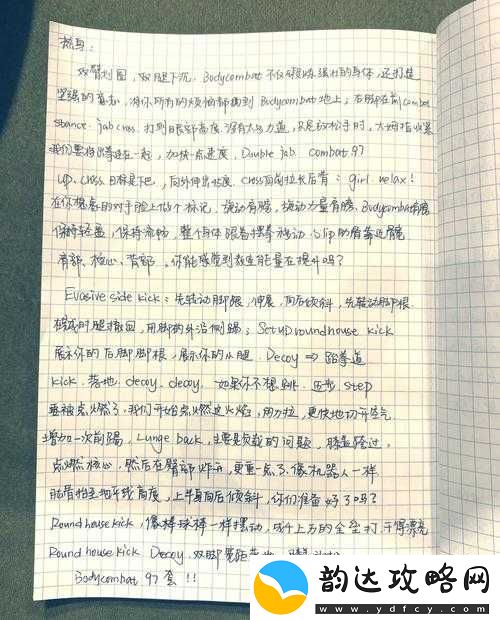 热身:
双臂划圈,双腿下沉. Bodycombat 不仅锻炼强壮的身体,还打造
坚强的意志,将你所有的烦恼都 到 Bodycombat 地上;右脚在前combat
stance. jab cross. 打到眼部高度.没有太多力道,只是放松手肘,大拇指收紧
我们要将出拳连在一起,加快一点速度, Double jab. combat 97
up. cross 目标是下巴,向外伸出长度. cross向前拉长后背; girl. relax!
在你想象的对手脸上做个标记,旋动 ,旋动力量 . Bodycombat
保持轻盈,保持流畅,整个身体跟着摆拳移动. slip 的肩靠近髋
肩部、核心、背部,你能感觉到 能量在提升吗?
Evasive side kick:先转动脚跟,伸展,向后倾斜,先转动脚跟.
用脚的外沿侧踢; Set up roundhouse kick
展示你的后脚脚跟,展示你的小腿. Decoy ⇒ 跆拳道
kick. 落地. decoy. decoy. 如果你不想跳. step
点燃了,我们开始点燃这火焰,用力拉,更快地切开空气
增加一次前踢, Lunge back,主要是负载的问题,膝盖
点燃核心,然后在臀部炸开,更重一点了,像机器人一样
抬至地平线高度,上半身向后倾斜,你们准备好了吗?
Roundhouse kick,像棒球棒一样摆动,成千上万的全垒打.干得漂亮
Roundhouse kick. Decoy. 双脚宽距
Bodycombat 97 套!!
韵达攻略网
www.ydfcy.com